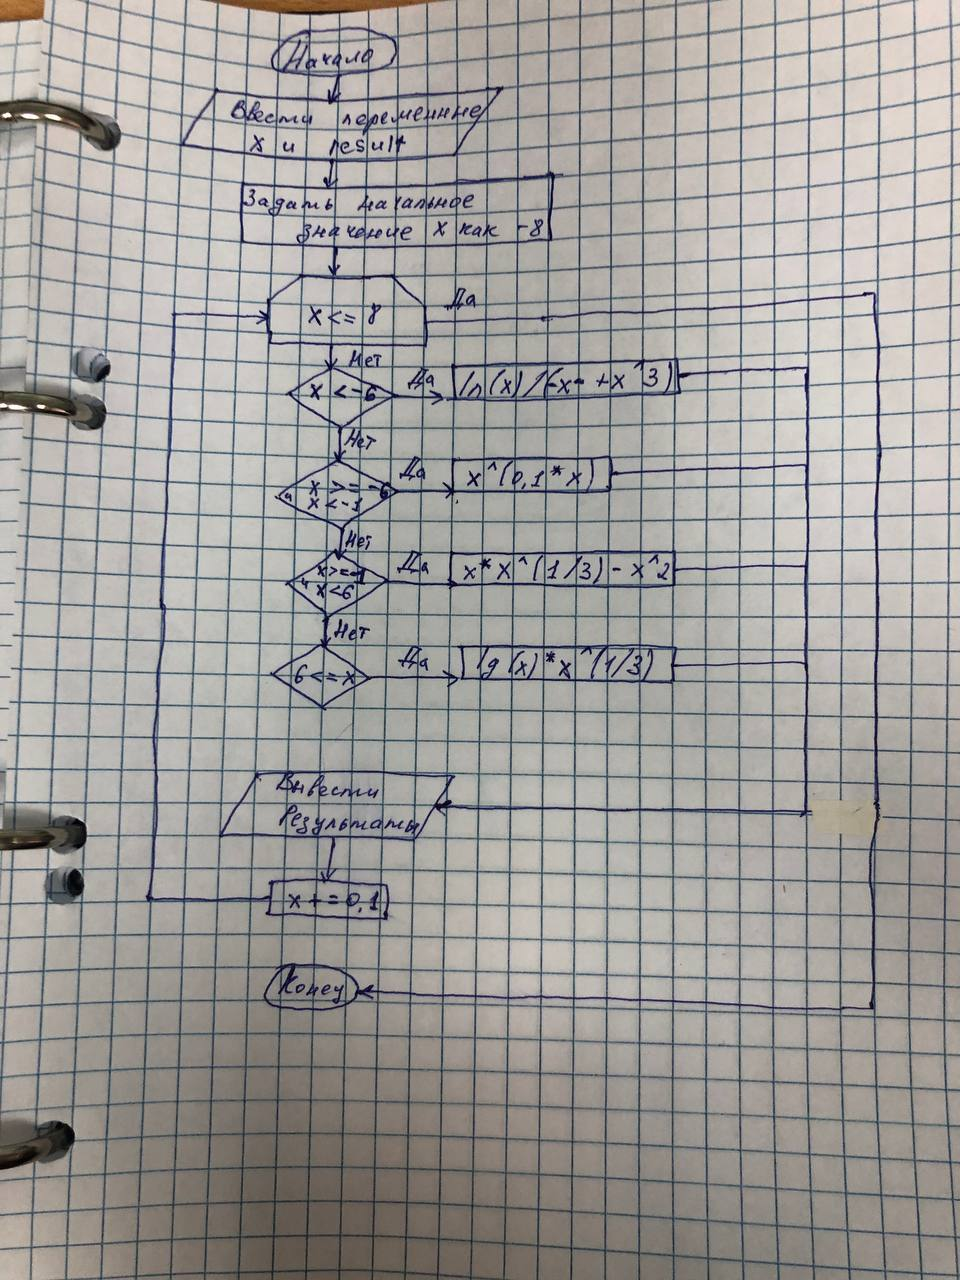 Начало
Ввести переменные
X и result
Задать начальное
значение X как -8
X <= 8
Да
Нет
X < -6
Да
ln(x)/(-x- +x^3)
Нет
x >= -6
и x < -1
Да
x^(0,1*x)
Нет
x >= -1
и x < 6
Да
x*x^(1/3) - x^2
Нет
6 <= x
Да
lg(x)*x^(1/3)
Вывести
результаты
x += 0,1
Конец